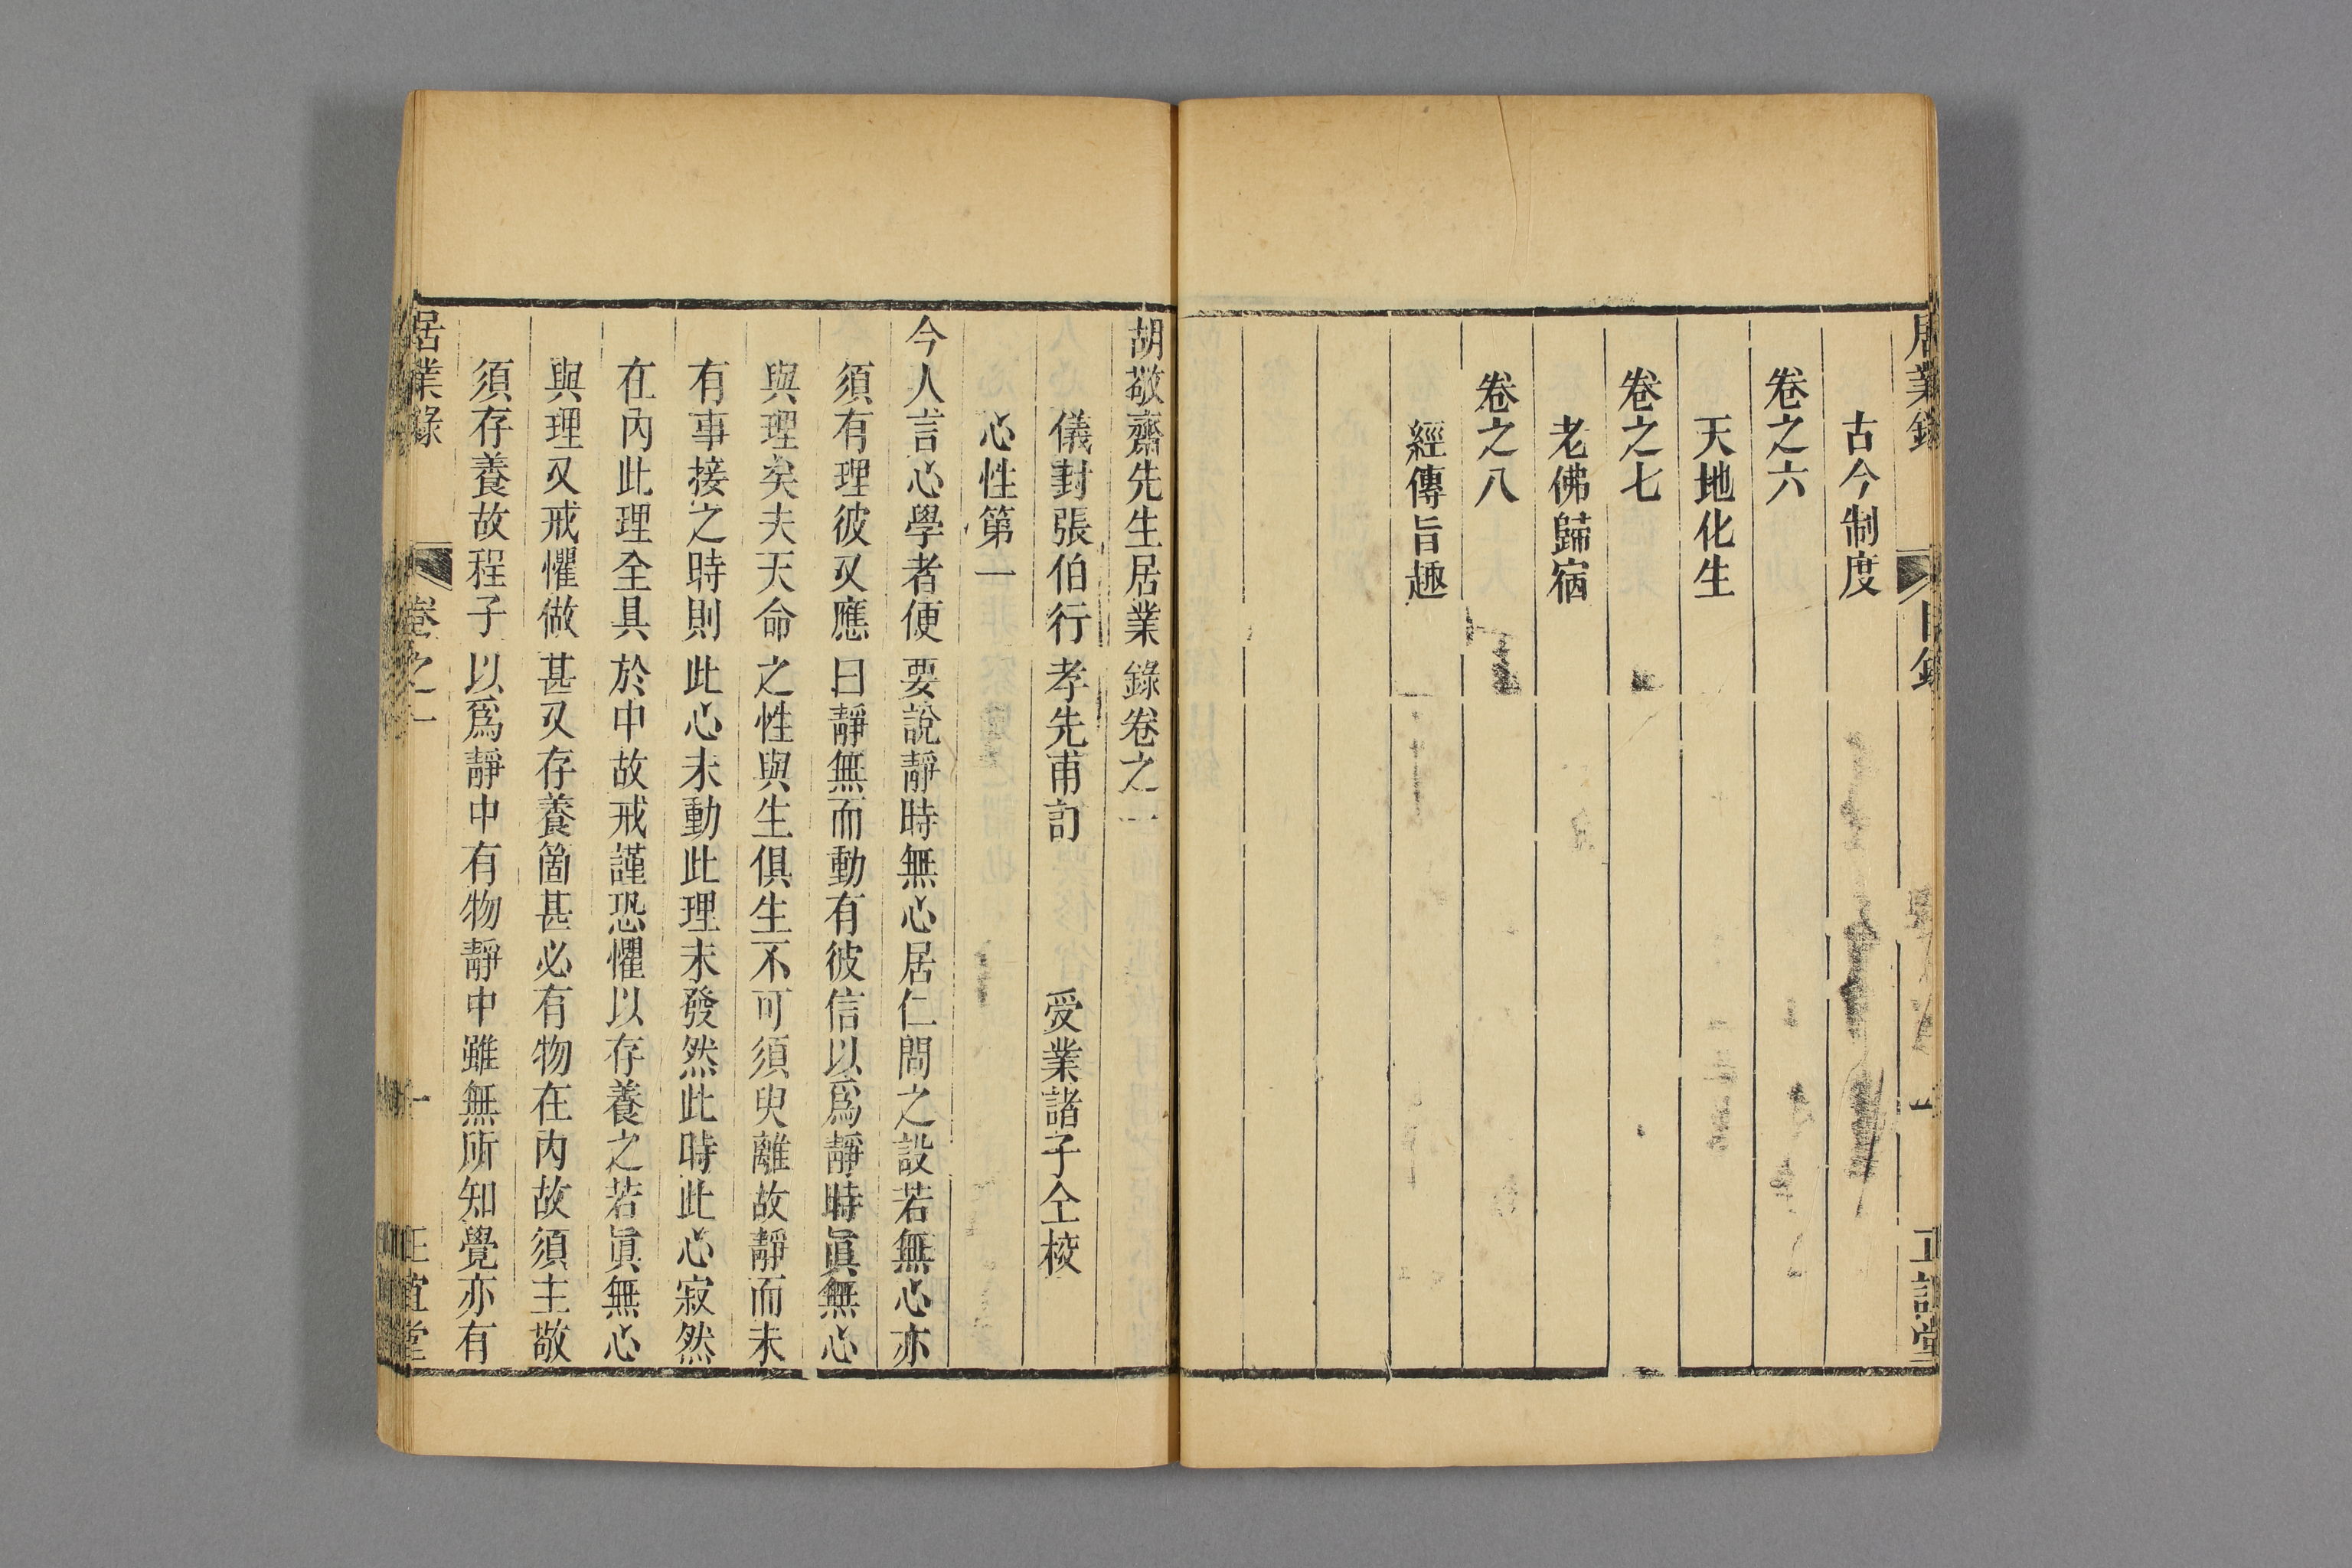 居業錄 目錄 一 正誼堂
古今制度
卷之六
天地化生
卷之七
老佛歸宿
卷之八
經傳旨趣
胡敬齋先生居業錄卷之一
儀封張伯行孝先甫訂 受業諸子仝校
心性第一
今人言心學者便要說靜時無心居仁問之設若無心亦
須有理彼又應曰靜無而動有彼信以爲靜時眞無心
與理矣夫天命之性與生俱生不可須臾離故靜而未
有事接之時則此心未動此理未發然此時此心寂然
在內此理全具於中故戒謹恐懼以存養之若眞無心
與理又戒懼做甚又存養箇甚必有物在內故須主敬
須存養故程子以爲靜中有物靜中雖無所知覺亦有
居業錄 卷之一 一 正誼堂